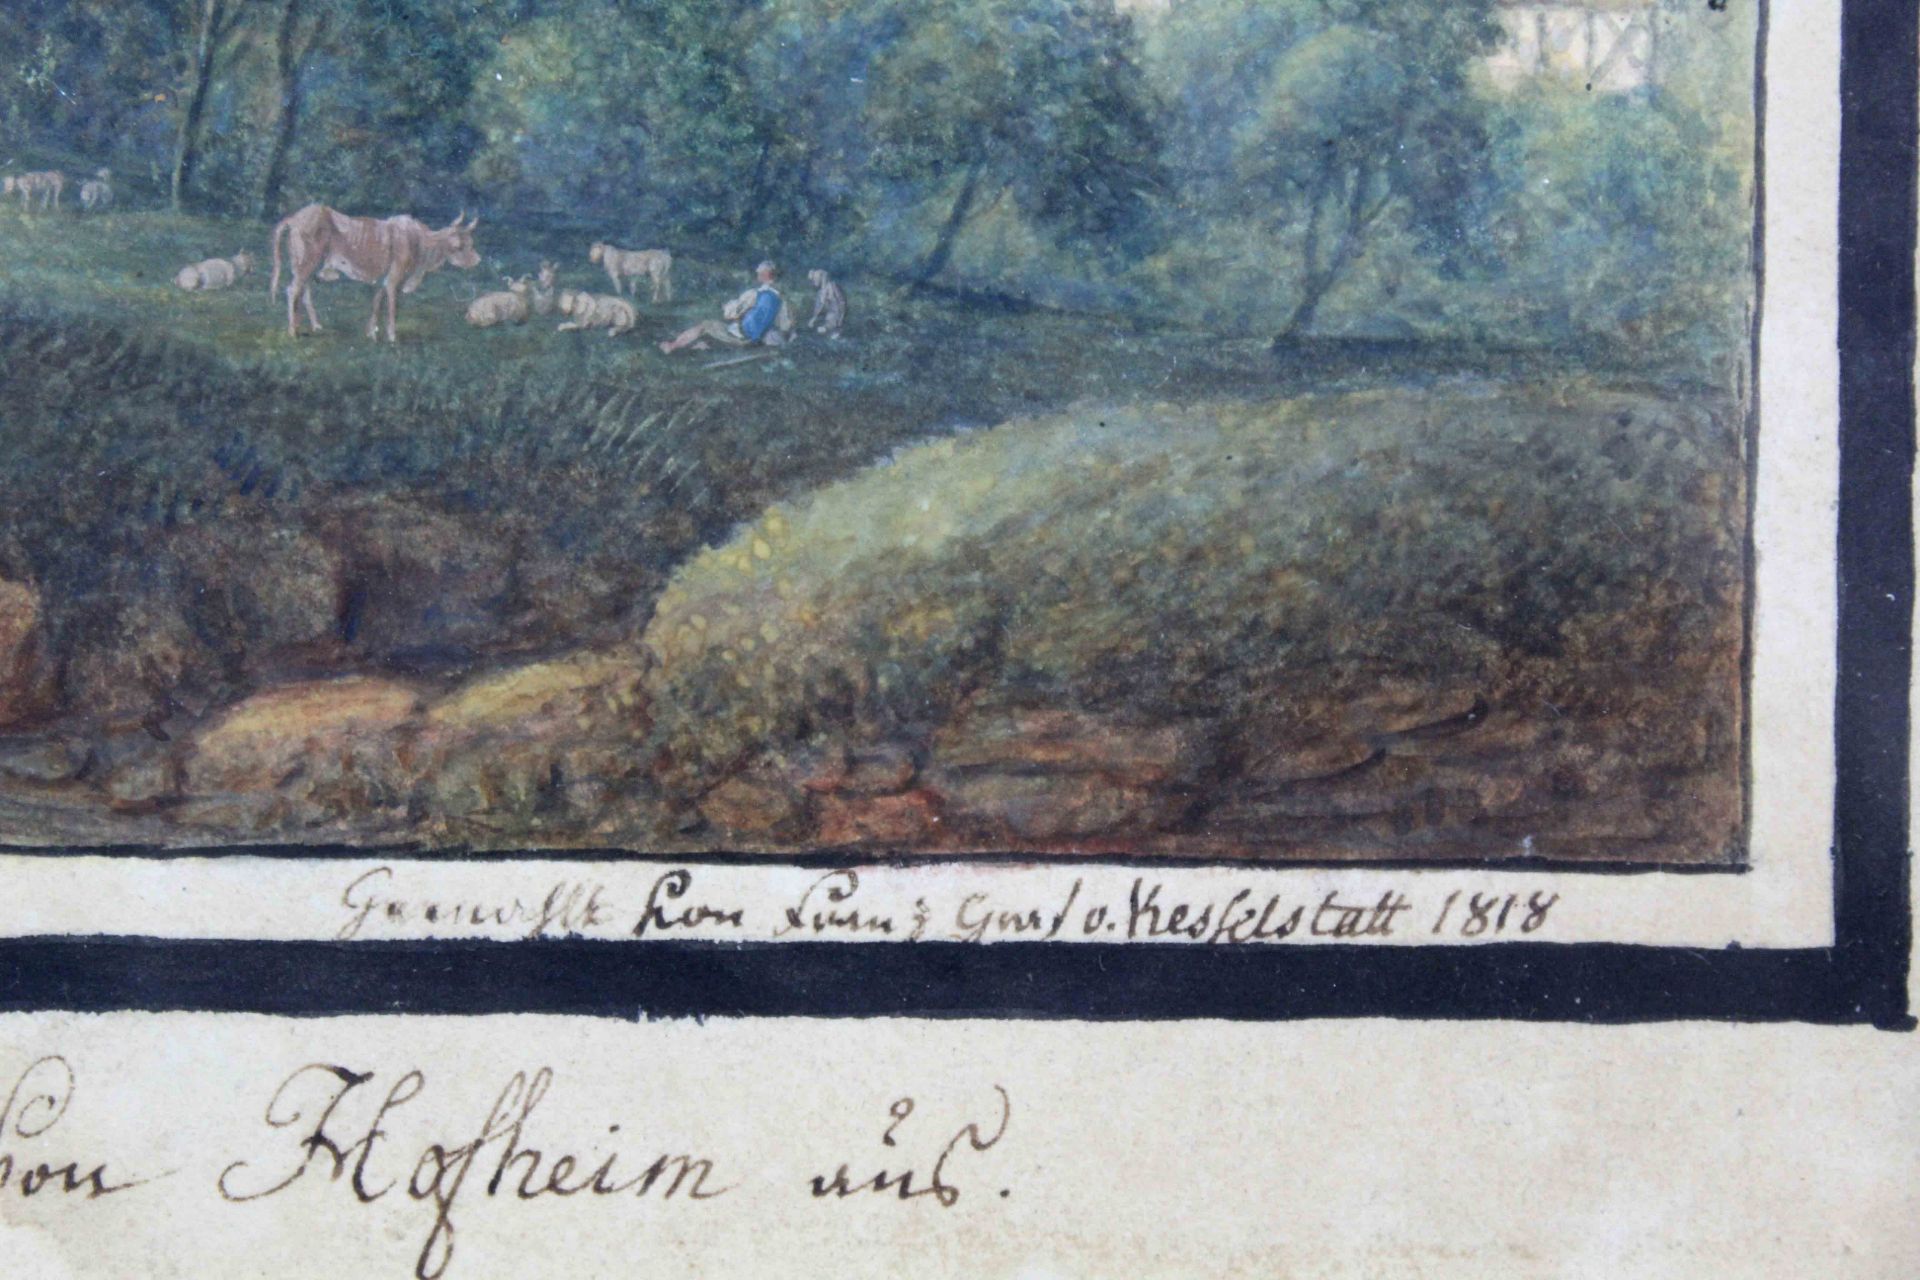 Gemahlt von Franz Graf v. Kesselstatt 1818
von Hofheim aus.